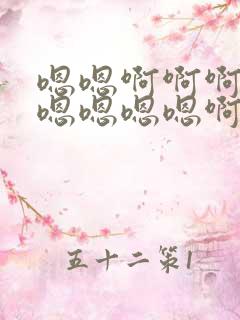 嗯嗯啊啊啊
嗯嗯嗯嗯啊
五十二第1